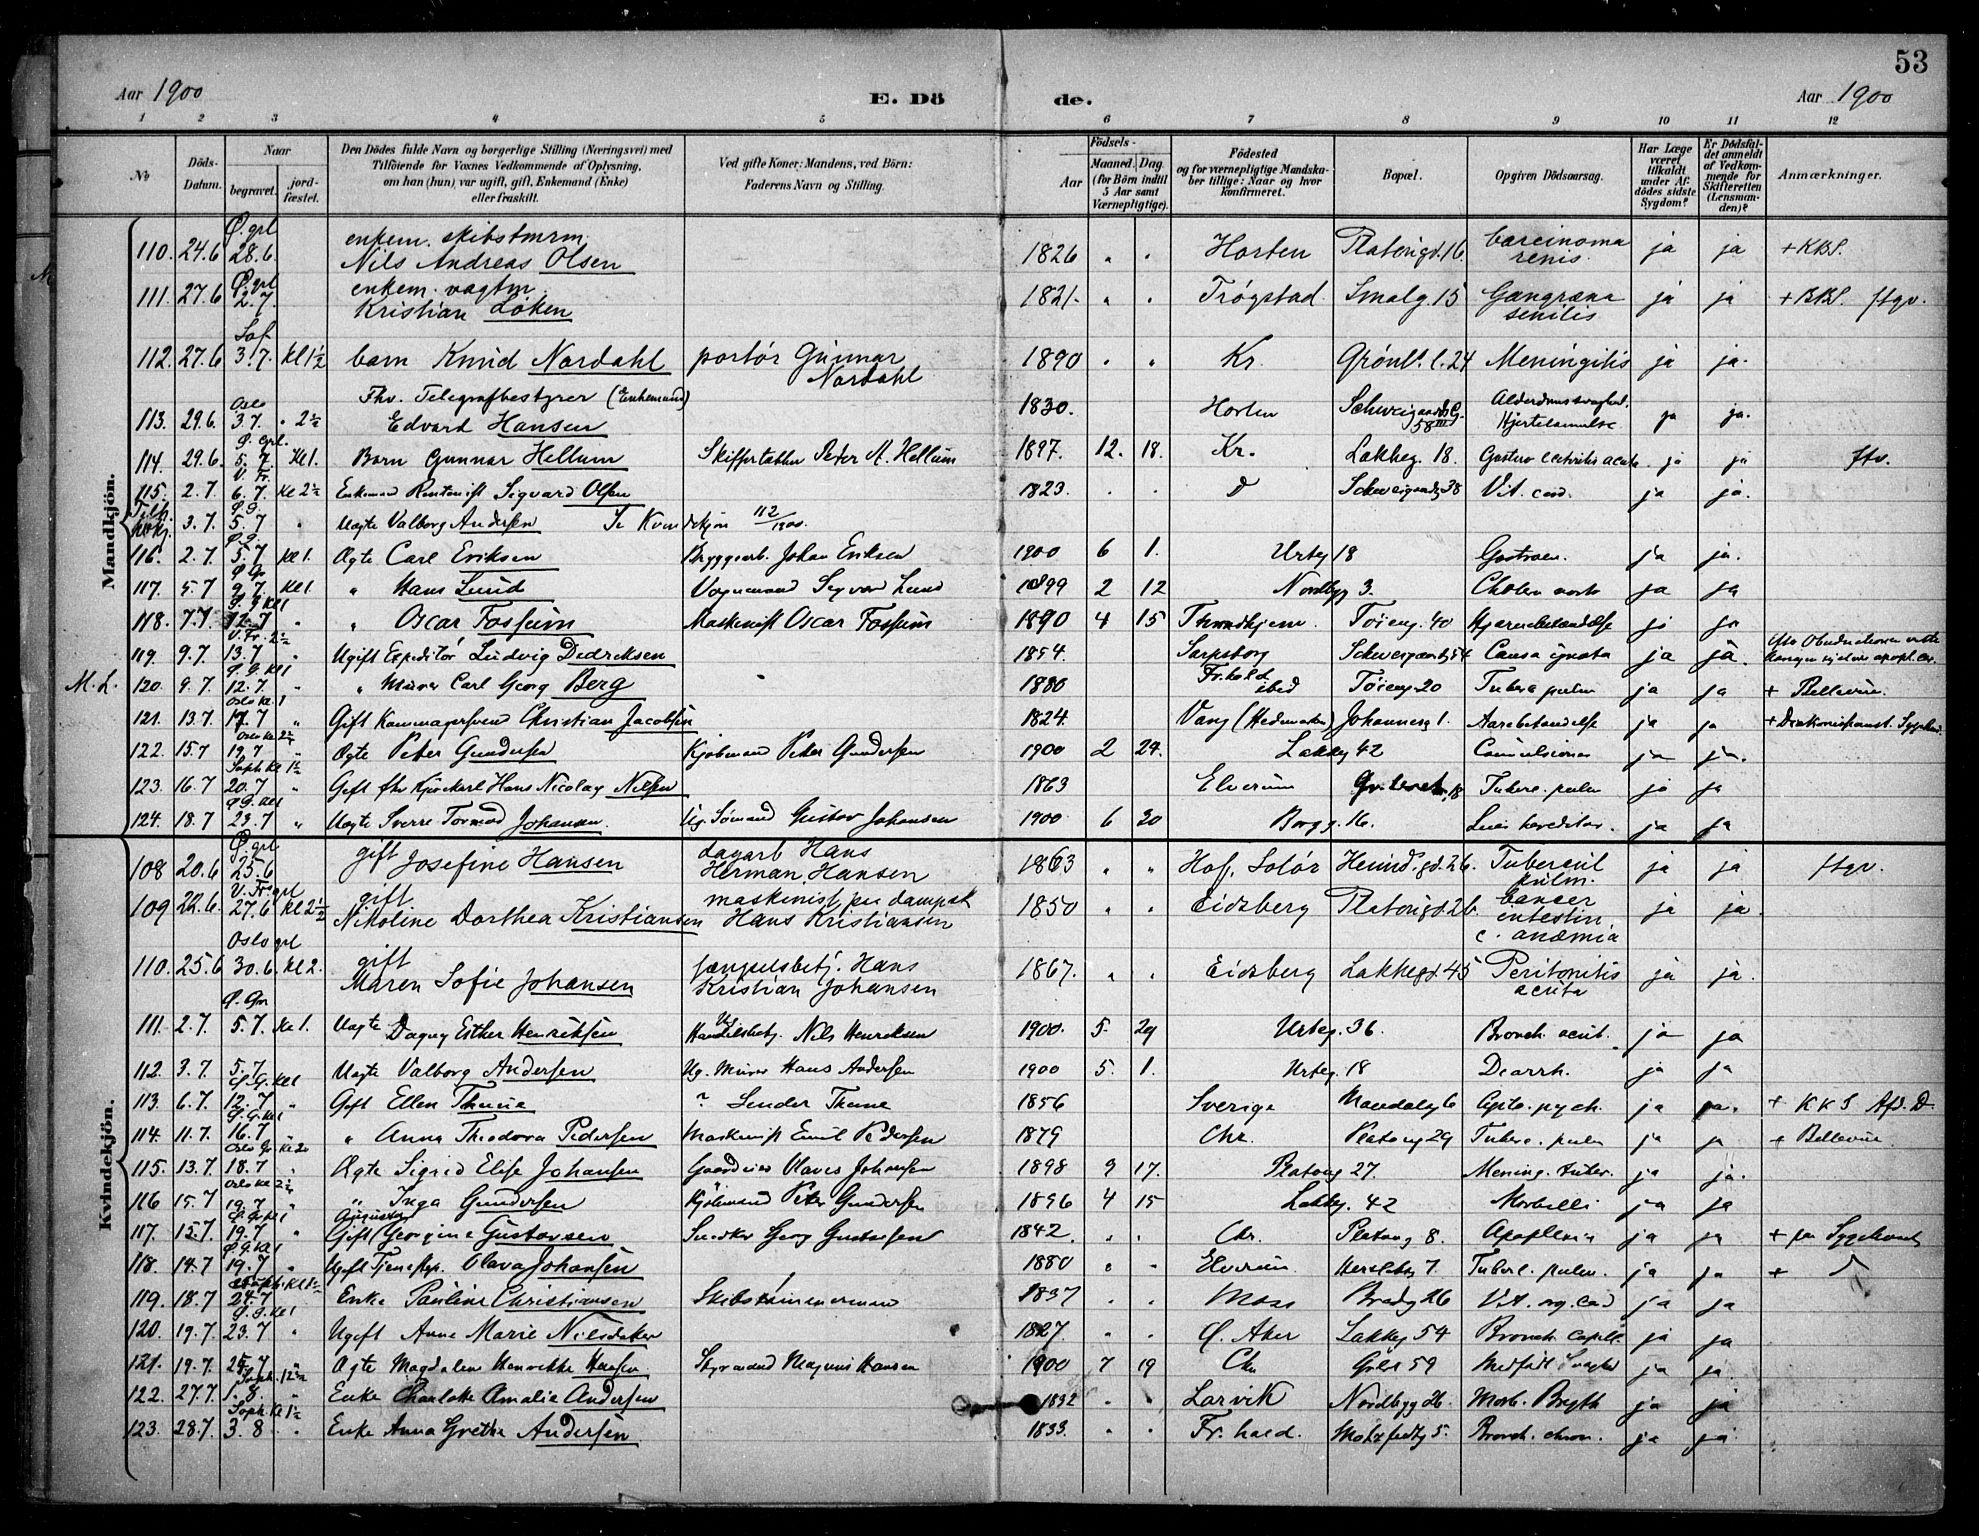 53
Aar 1900
E. Dö
de.
Aar 1900
1 2 3 4 5 6 7 8 9 10 11 12
No
Döds-Datum.
Naar
begravet.
jord-fæstet.
Den Dödes fulde Navn og borgerlige Stilling (Næringsvei) med
Tilföiende for Voxnes Vedkommende af Oplysning,
om han (hun) var ugift, gift, Enkemand (Enke)
eller fraskilt.
Ved gifte Koner: Mandens, ved Börn:
Faderens Navn og Stilling.
Födsels-
Aar
Maaned. Dag.
(for Börn indtil
5 Aar samt
Værnepligtige).
Födested
og for værnepligtige Mandska-
ber tillige: Naar og hvor
konfirmeret.
Bopæl.
Opgiven Dödsaarsag.
Har Læge
været
tilkaldt
under Af-
dödes sidste
Sygdom?
Er Dödsfal-
det anmeldt
af Vedkom-
mende for
Skifteretten
(Lensman-
den)?
Anmærkninger.
Mandkjön.
Ø. grl
110. 24.6 28.6 enkem. skibstmrm. Nils Andreas Olsen 1826 " " Horten Platousgd. 16 Carcinoma renis. ja ja + KBS.
Ø. grl
111. 27.6 2.7 enkem. vagtm. Kristian Løken 1821. " " Trøgstad Smalg. 15 Gangræna senilis ja ja + BBS ftgv.
Sof
112. 27.6 3.7. kl 1½ barn Knud Nordahl portør Gunnar Nordahl 1890 " " Kr. Grønl. l. 24 Meningitis ja ja.
Oslo
113. 29.6. 3.7. " 2½ Fhv. Telegrafbestyrer (Enkemand) Edvard Hansen 1830. Horten Schweigaards G. 58 III Alderdomssvaghed. Hjertelammelse ja ja.
Ø. grl.
114. 29.6. 5.7. Kl 1. Barn Gunnar Hellum Skiffertækker Peter M. Hellum 1897. 12. 18. Kr. Lakkeg. 18. ja ja ftv.
V. Fr.
115. 2.7. 6.7. kl 2½ Enkemand Rentenist Sigvard Olsen 1823. Schweigaardsg 38 Vit. cord. ja ja.
Ø. G.
3.7. 5.7 " Uægte Valborg Andersen Se Kvindekjøn 112/1900.
Ø. G.
116. 2.7. 5.7. kl 1. Ægte Carl Eriksen Bryggearb. Johan Eriksen 1900 6 1. Urteg 18 ja ja.
Ø Gr
117. 5.7 9.7. kl 1. " Hans Lund Vognmand Sigvar Lund 1899 2 12 Nordbyg 3. ja ja
Ø. G kl 1
118. 7.7. 12.7 " " Oscar Fossum Maskinist Oscar Fossum 1890 4 15 Throndhjem Tøieng. 40 Hjernebetændelse ja ja
V. Fr. 2½
119. 9.7. 13.7 " Ugift Expeditør Ludvig Dedreksen 1854. Sarpsborg Schweigaardsg 54 Causa ignota ja ja.
Ø. G. kl 1
M. L. 120. 9.7. 12.7. " " Murer Carl Georg Berg 1880 Fr.hald ibid Tøieng 20 Tuberc pulm ja ja + Bellevue.
Oslo kl. 1
121. 13.7. 17.7 " Gift Kammagersvend Christian Jacobsen 1824. Vang (Hedemarken) Johannesg 1. Aarebetændelse ja ja
Oslo kl 2½
122. 15.7 19.7 " Ægte Peter Gundersen Kjøbmand Peter Gundersen 1900 2 24. Lakkeg 42 Convulsiones ja ja.
Soph kl 1½
123. 16.7 20.7 " Gift fhv Kjørekarl Hans Nicolay Nilsen 1863 Elverum Tuberc. pulm ja ja
Ø G. kl 1
124. 18.7 23.7 " Uægte Sverre Tormod Johansen. Ug. Sømand Gustav Johansen 1900 6 20 Borgg. 16. Lues hereditar. ja ja
Kvindekjön.
Ø. grl
108 20.6 25.6 gift Josefine Hansen dagarb Hans Herman Hansen 1863 " " Hof, Solør Heimd. gd. 26. Tubercul pulm. ja ja ftgv.
V. Fr. grl
109 22.6. 27.6 kl 2½ gift. Nikoline Dorthea Kristiansen maskinist paa dampsk Hans Kristiansen 1850 " " Eidsberg Platousgd. 26. Cancer intestin. c. anæmia ja ja
Oslo grl
110. 25.6 30.6. kl 2. gift Maren Sofie Johansen fængselsbetj. Hans Kristian Johansen 1867. " " Eidsberg Lakkegd. 45 Peritonitis acuta ja ja.
Ø. Gr
111. 2.7. 5.7. kl 1. Uægte Dagny Esther Henriksen Ug Handelsbetj. Nils Henriksen 1900. 5. 29 Urteg. 36. Bronch. acut. ja ja
112. 3.7. 5.7 Uægte Valborg Andersen Ug. Murer Hans Andersen 1900 5. 1. Urteg. 18 Diarrh. ja ja
Ø. G. kl 1
113. 6.7. 12.7 " Gift Ellen Thune ? Sender Thune 1856 Sverige Mandalsg 6 ja ja. + K K S Afd. D.
Ø. G. kl 1
114. 11.7. 16.7 " " Anna Theodora Pedersen Maskinist Emil Pedersen 1879 Chr. Platousg 29 Tuberc. pulm ja ja + Bellevue
Oslo
115. 13.7. 18.7 " Ægte Sigrid Elise Johansen Olaves Johansen 1898 9 17. Platousg 27. Mening. tuber. ja ja.
Oslo kl 2½
116 15.7 19.7 " " Inga Gundersen Kjøbmand Peter Gundersen 1896 4 15 Lakkeg. 42 Morbilli ja ja
Ø. G. kl 1
117. 15.7. 19.7 " Gift Augusta Georgine Gustavsen Snedker Georg Gustavsen 1842. " " Chr. Platousg 8. Apoplexia ja ja
Ø. G. kl 1
118. 14.7 19.7 " Ugift Tjenestep. Olava Johansen 1880 " " Elverum. Herslebsg 7. Tuberc. pulm. ja ja +
Soph. kl 1½
119. 18.7 24.7 " Enke Pauline Christiansen Skibstømmermand 1837 " " Moss Bredg 26 Vit. org. cord ja ja
Ø. G. kl 1
120. 19.7. 23.7 " Ugift Anne Marie Nilsdatter 1827. " " Ø. Aker Lakkeg 54 Bronch. capill. ja ja
121. 19.7. 25.7 " Ægte Magdalene Henrikke Hansen Styrmand Magnus Hansen 1900 7 19 Chr Medfødt Svaghed ja ja
Soph. 12½
122. 27.7. 1.8. " Enke Charlotte Amalia Andersen 1832 " " Larvik Nordbyg 26. Morb. Brigth ja ja
Soph. kl 1½
123. 28.7. 3.8 " Enke Anna Grethe Andersen 1833. " " Fr. hald. Motzfeldtsg 5. Bronch. chron. ja ja